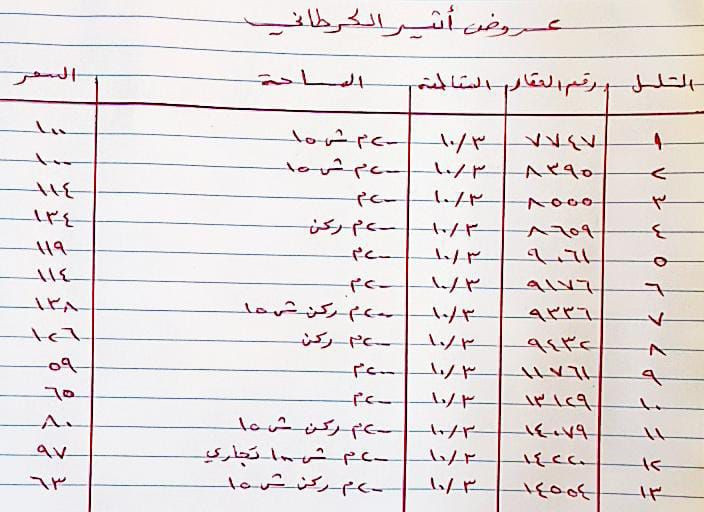 عروض أثير الكرطاني
التسلسل رقم العقار المقاطعة المساحة السعر
١ ٧٧٤٧ ١٠/٣ ٢٠٠م ش ١٥ ١٠٠
٢ ٨٣٩٥ ١٠/٣ ٢٠٠م ش ١٥ ١٠٠
٣ ٨٥٥٥ ١٠/٣ ٢٠٠م ١١٤
٤ ٨٦٥٩ ١٠/٣ ٢٠٠م ركن ١٣٤
٥ ٩٠٦١ ١٠/٣ ٢٠٠م ١١٩
٦ ٩١٧٦ ١٠/٣ ٢٠٠م ١١٤
٧ ٩٣٣٦ ١٠/٣ ٢٠٠م ركن ش ١٥ ١٣٨
٨ ٩٤٣٢ ١٠/٣ ٢٠٠م ركن ١٢٦
٩ ١١٧٦١ ١٠/٣ ٢٠٠م ٥٩
١٠ ١٣١٢٩ ١٠/٣ ٢٠٠م ٦٥
١١ ١٤٠٧٩ ١٠/٣ ٢٠٠م ركن ش ١٥ ٨٠
١٢ ١٤٢٢٠ ١٠/٣ ٢٠٠م ش ١٠٠ تجاري ٩٧
١٣ ١٤٥٥٤ ١٠/٣ ٢٠٠م ركن ش ١٥ ٦٣